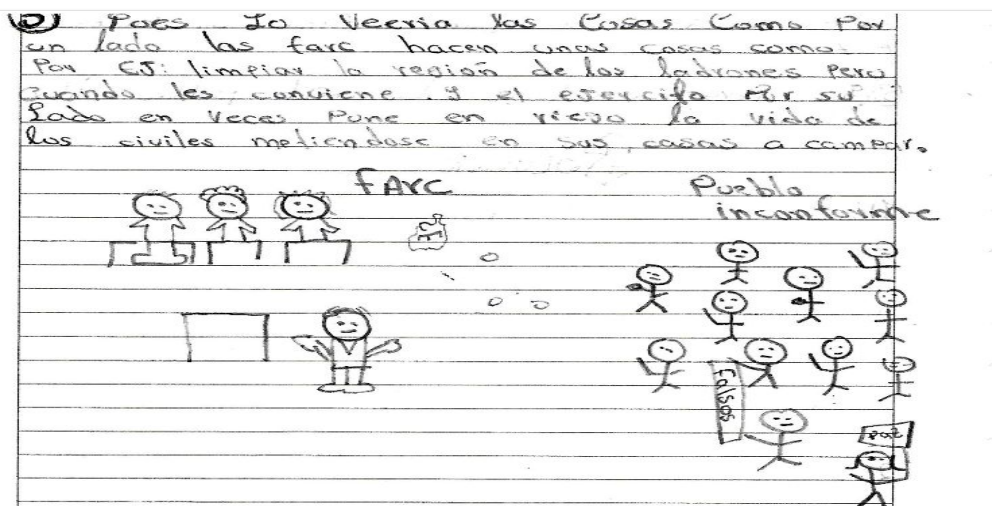 5) Pues Io Veeria las Cosas Como Por
un lado las farc hacen unas cosas como
Por EJ: limpiar la region de los ladrones Pero
Cuando les conviene. y el ejercito Por su
lado en veces Pone en riezo la vida de
los civiles metiendose en sus casas a campar.
FARC
Pueblo
inconforme
Falsos
Paz